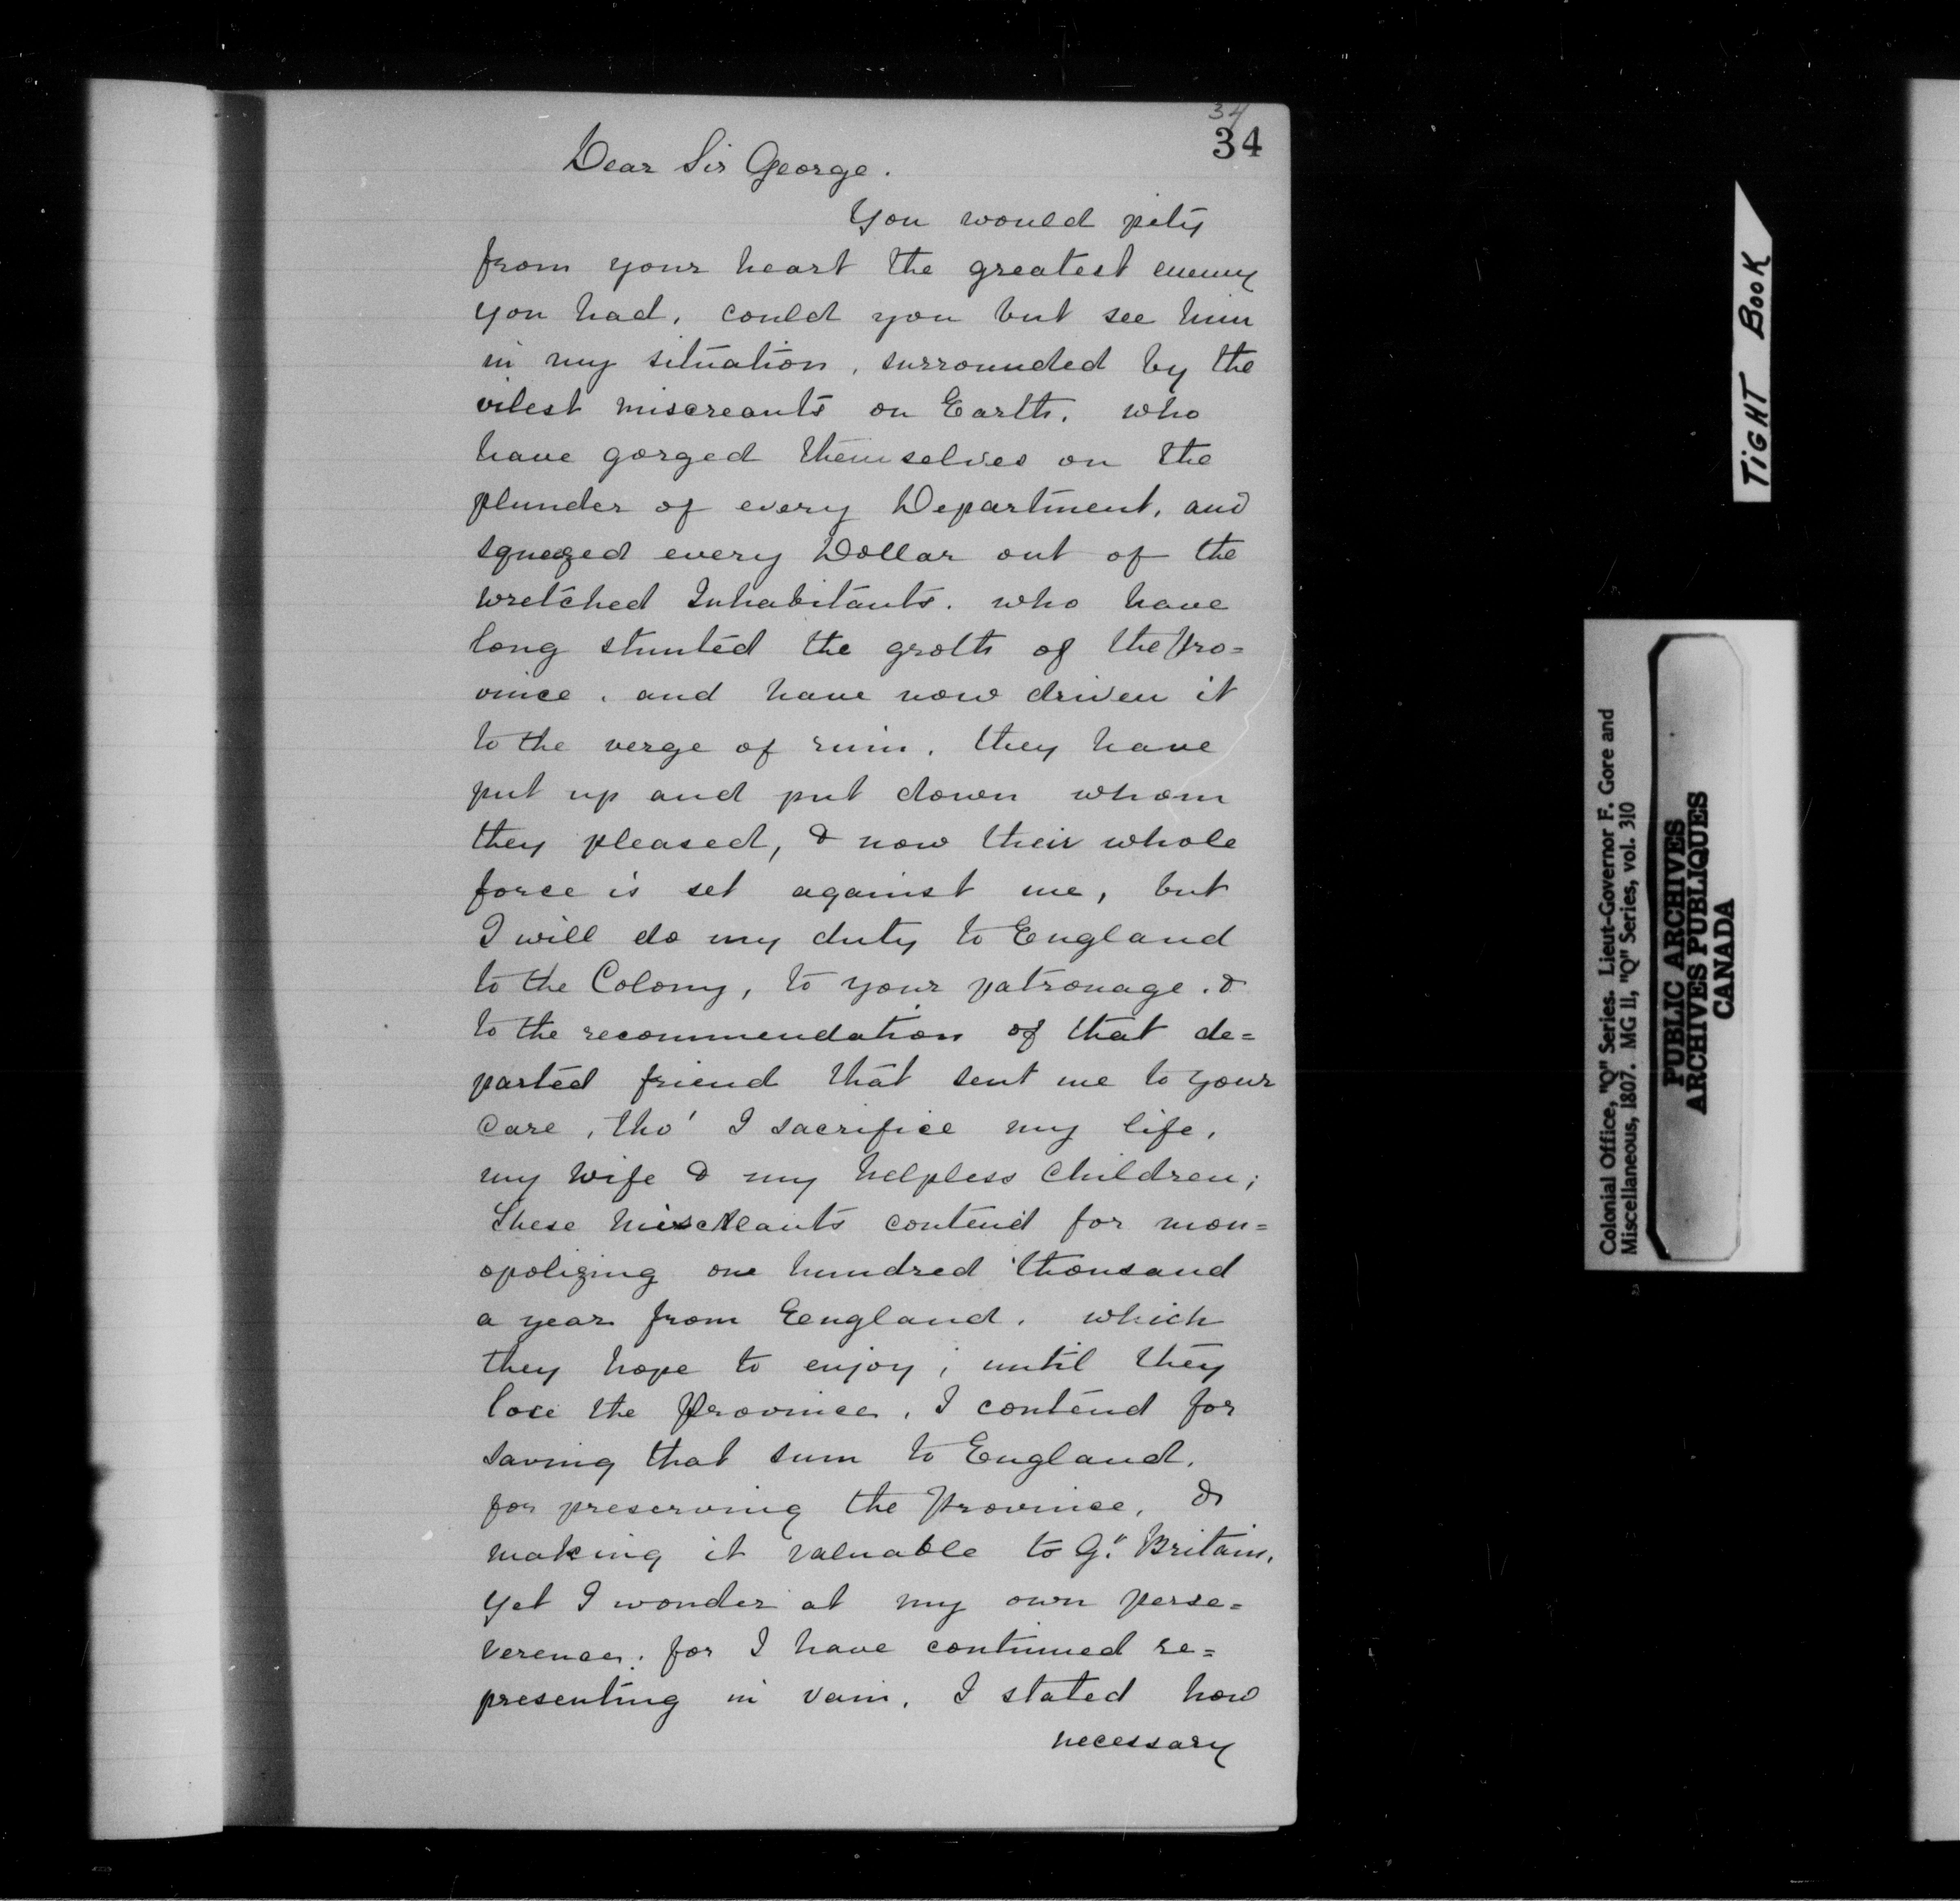 34
34
Dear Sir George.
You would pity
from your heart the greatest enemy
you had, could you but see him
in my situation, surrounded by the
vilest miscreants on Earth. who
have gorged themselves on the
plunder of every Department, and
squezed every Dollar out of the
wretched Inhabitants. who have
long stunted the groth of the Pro=
vince. and have now driven it
to the verge of ruin. they have
put up and put down whom
they pleased, & now their whole
force is set against me, but
I will do my duty to England
to the Colony, to your patronage. &
to the recommendation of that de=
parted friend that sent me to your
care, tho' I sacrifice my life,
my wife & my helpless children;
These miscreants contend for mon=
opolizing one hundred thousand
a year from England. which
they hope to enjoy, until they
lose the Province, I contend for
saving that sum to England.
for preserving the Province, &
making it valuable to G.t Britain.
Yet I wonder at my own perse=
verence; for I have continued re=
presenting in vain. I stated how
necessary
TIGHT BOOK
Colonial Office, "Q" Series. Lieut-Governor F. Gore and
Miscellaneous, 1807. MG 11, "Q" Series, vol. 310
PUBLIC ARCHIVES
ARCHIVES PUBLIQUES
CANADA